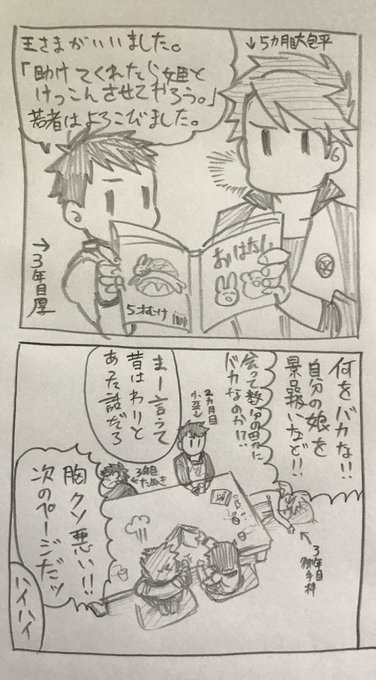 王さまがいいました。
「助けてくれたら姫と
けっこんさせてやろう。」
若者はよろこびました。
↓5カ月目大包平
→3年目厚
5才むけ
おはなし
何をバカな!!
自分の娘を
景品扱いなど!!
会って数分の男に
バカなのか!?
まー言うて
昔はわりと
あった話だろ
2カ月目
小豆↓
3年目
たぬき
3年目
御手杵
胸クソ悪い!!
次のページだッ
ハイハイ